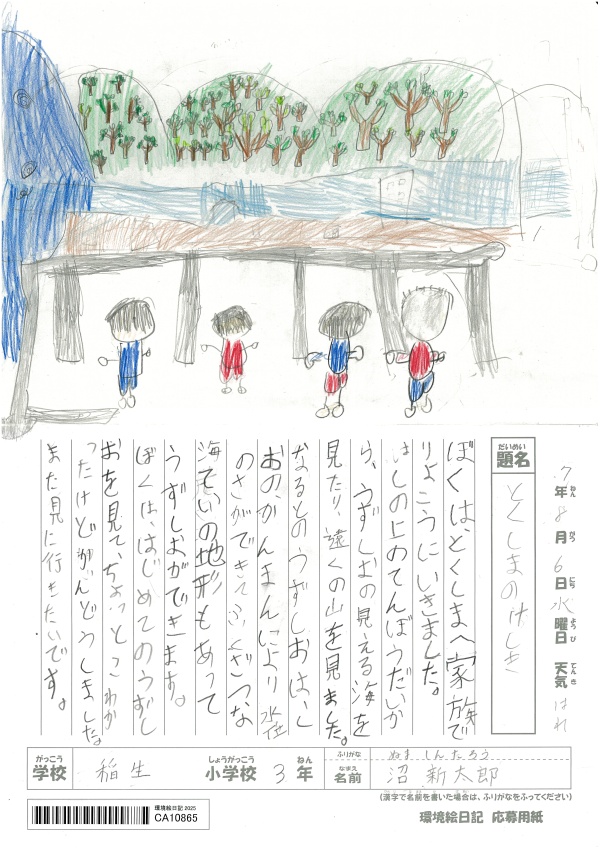 7年ねん 8月がつ 6日にち 水曜日ようび 天気てんき はれ
だいめい
題名
とくしまのけしき
ぼくは、とくしまへ家族で
りょこうにいきました。
はしの上のてんぼうだいか
ら、うずしおの見える海を
見たり、遠くの山を見ました。
なるとのうずしおは、し
おのかんまんにより水位
のさができてふくざつな
海ていの地形もあって
うずしおができます。
ぼくは、はじめてのうずし
おを見て、ちょっとこわか
ったけどかんどうしました。
また見に行きたいです。
がっこう
学校
稲生
しょうがっこう
小学校
3
ねん
年
ふりがな
ぬま しんたろう
なまえ
名前
沼 新太郎
(漢字で名前を書いた場合は、ふりがなをふってください)
環境絵日記 2025
CA10865
環境絵日記 応募用紙